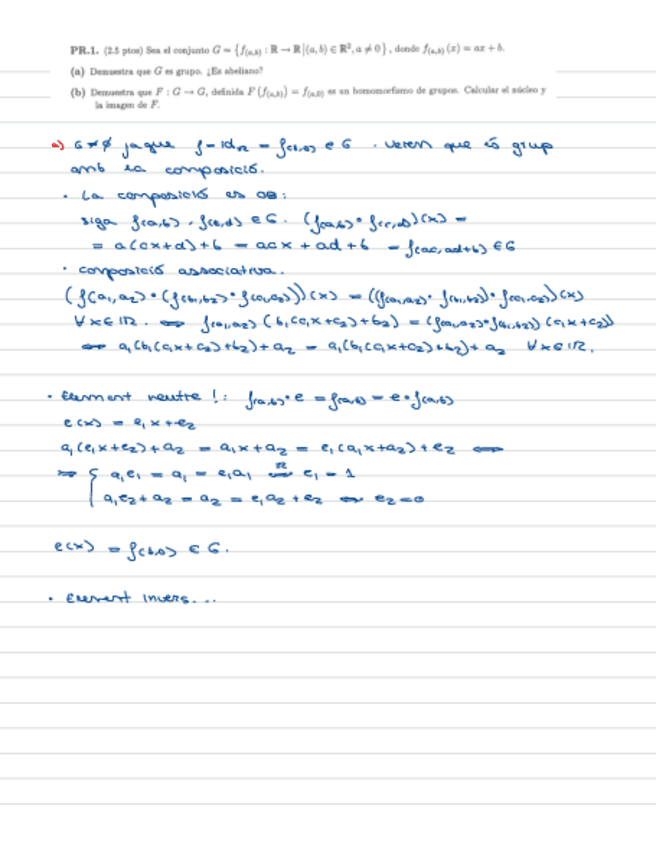 PR.1. (2.5 ptos) Sea el conjunto G = {f₍ₐ,b₎ : ℝ → ℝ | (a, b) ∈ ℝ², a ≠ 0}, donde f₍ₐ,b₎(x) = ax + b.
(a) Demuestra que G es grupo. ¿Es abeliano?
(b) Demuestra que F : G → G, definida F(f₍ₐ,b₎) = f₍ₐ,₀₎ es un homomorfismo de grupos. Calcular el núcleo y
la imagen de F.
a) G ≠ ∅ ja que f = id_ℝ = f(1,0) ∈ G. Verem que és grup
amb la composició.
· La composició es
siga f(a,b), f(c,d) ∈ G. (f(a,b) ∘ f(c,d))(x) =
= a(cx+d)+b = acx + ad + b = f(ac, ad+b) ∈ G
· composició associativa.
(f(a₁,a₂) ∘ (f(b₁,b₂) ∘ f(c₁,c₂)))(x) = ((f(a₁,a₂) ∘ f(b₁,b₂)) ∘ f(c₁,c₂))(x)
∀x∈ℝ. ⇔ f(a₁,a₂)(b₁(c₁x+c₂)+b₂) = (f(a₁,a₂)∘f(b₁,b₂))(c₁x+c₂)
⇔ a₁(b₁(c₁x+c₂)+b₂)+a₂ = a₁(b₁(c₁x+c₂)+b₂)+a₂ ∀x∈ℝ.
· Element neutre !: f(a,b) ∘ e = f(a,b) = e ∘ f(a,b)
e(x) = e₁x+e₂
a₁(e₁x+e₂)+a₂ = a₁x+a₂ = e₁(a₁x+a₂)+e₂ ⇔
⇔ { a₁e₁ = a₁ = e₁a₁ ⇔ e₁ = 1
a₁e₂+a₂ = a₂ = e₁a₂+e₂ ⇔ e₂=0
e(x) = f(1,0) ∈ G.
· Element invers...